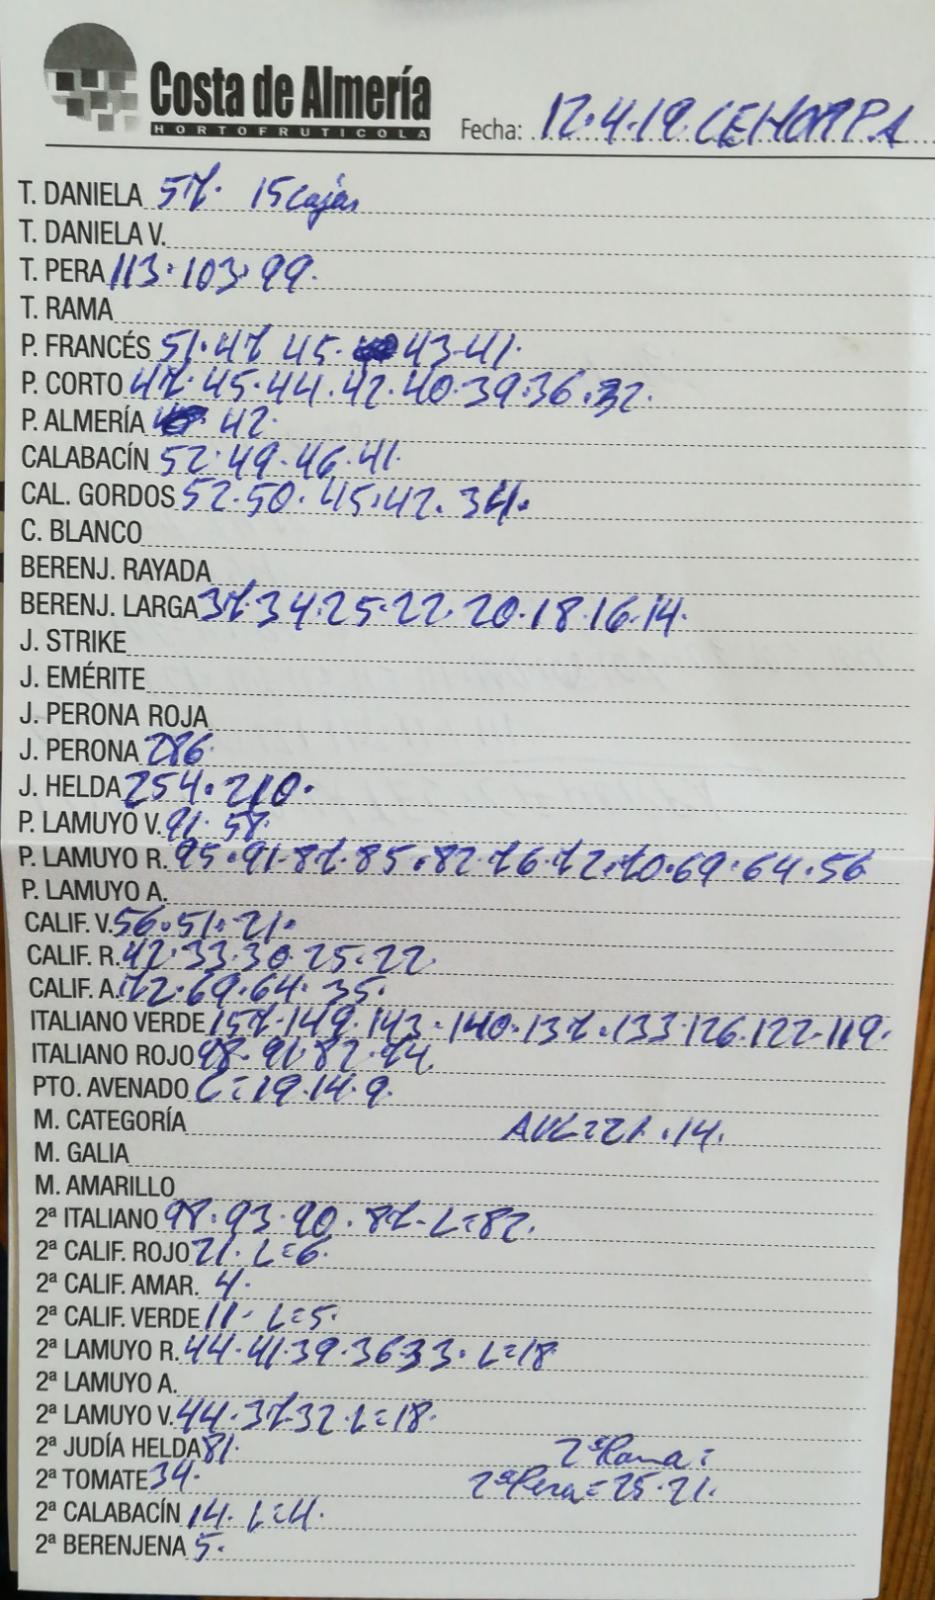 Costa de Almería
HORTOFRUTICOLA
Fecha: 12.4.19. CEHORPA
T. DANIELA 57. 15 Cajas
T. DANIELA V.
T. PERA 113.103.99.
T. RAMA
P. FRANCÉS 51.47 45. 43-41.
P. CORTO 47.45.44.42.40.39.36.32.
P. ALMERÍA 42.
CALABACÍN 52.49.46.41.
CAL. GORDOS 52.50.45.42.34.
C. BLANCO
BERENJ. RAYADA
BERENJ. LARGA 37.34.25.22.20.18.16.14.
J. STRIKE
J. EMÉRITE
J. PERONA ROJA
J. PERONA 286.
J. HELDA 254.210.
P. LAMUYO V. 91.58.
P. LAMUYO R. 95.91.87.85.82.76.72.70.69.64.56
P. LAMUYO A.
CALIF. V. 56.51.21.
CALIF. R. 42.33.30.25.22.
CALIF. A. 72.69.64.35.
ITALIANO VERDE 157.149.143.140.137.133.126.122.119.
ITALIANO ROJO 98.91.82.74.
PTO. AVENADO L=19.14.9.
M. CATEGORÍA 21.14.
M. GALIA
M. AMARILLO
2ª ITALIANO 98.93.90.87-L=82.
2ª CALIF. ROJO 21. L=6.
2ª CALIF. AMAR. 4.
2ª CALIF. VERDE 11- L=5.
2ª LAMUYO R. 44.41.39.36.33. L=18
2ª LAMUYO A.
2ª LAMUYO V. 44.37.32.L=18.
2ª JUDÍA HELDA 81. 2ª Rama:
2ª TOMATE 34. 2ª Pera=25.21.
2ª CALABACÍN 14. L=4.
2ª BERENJENA 5.